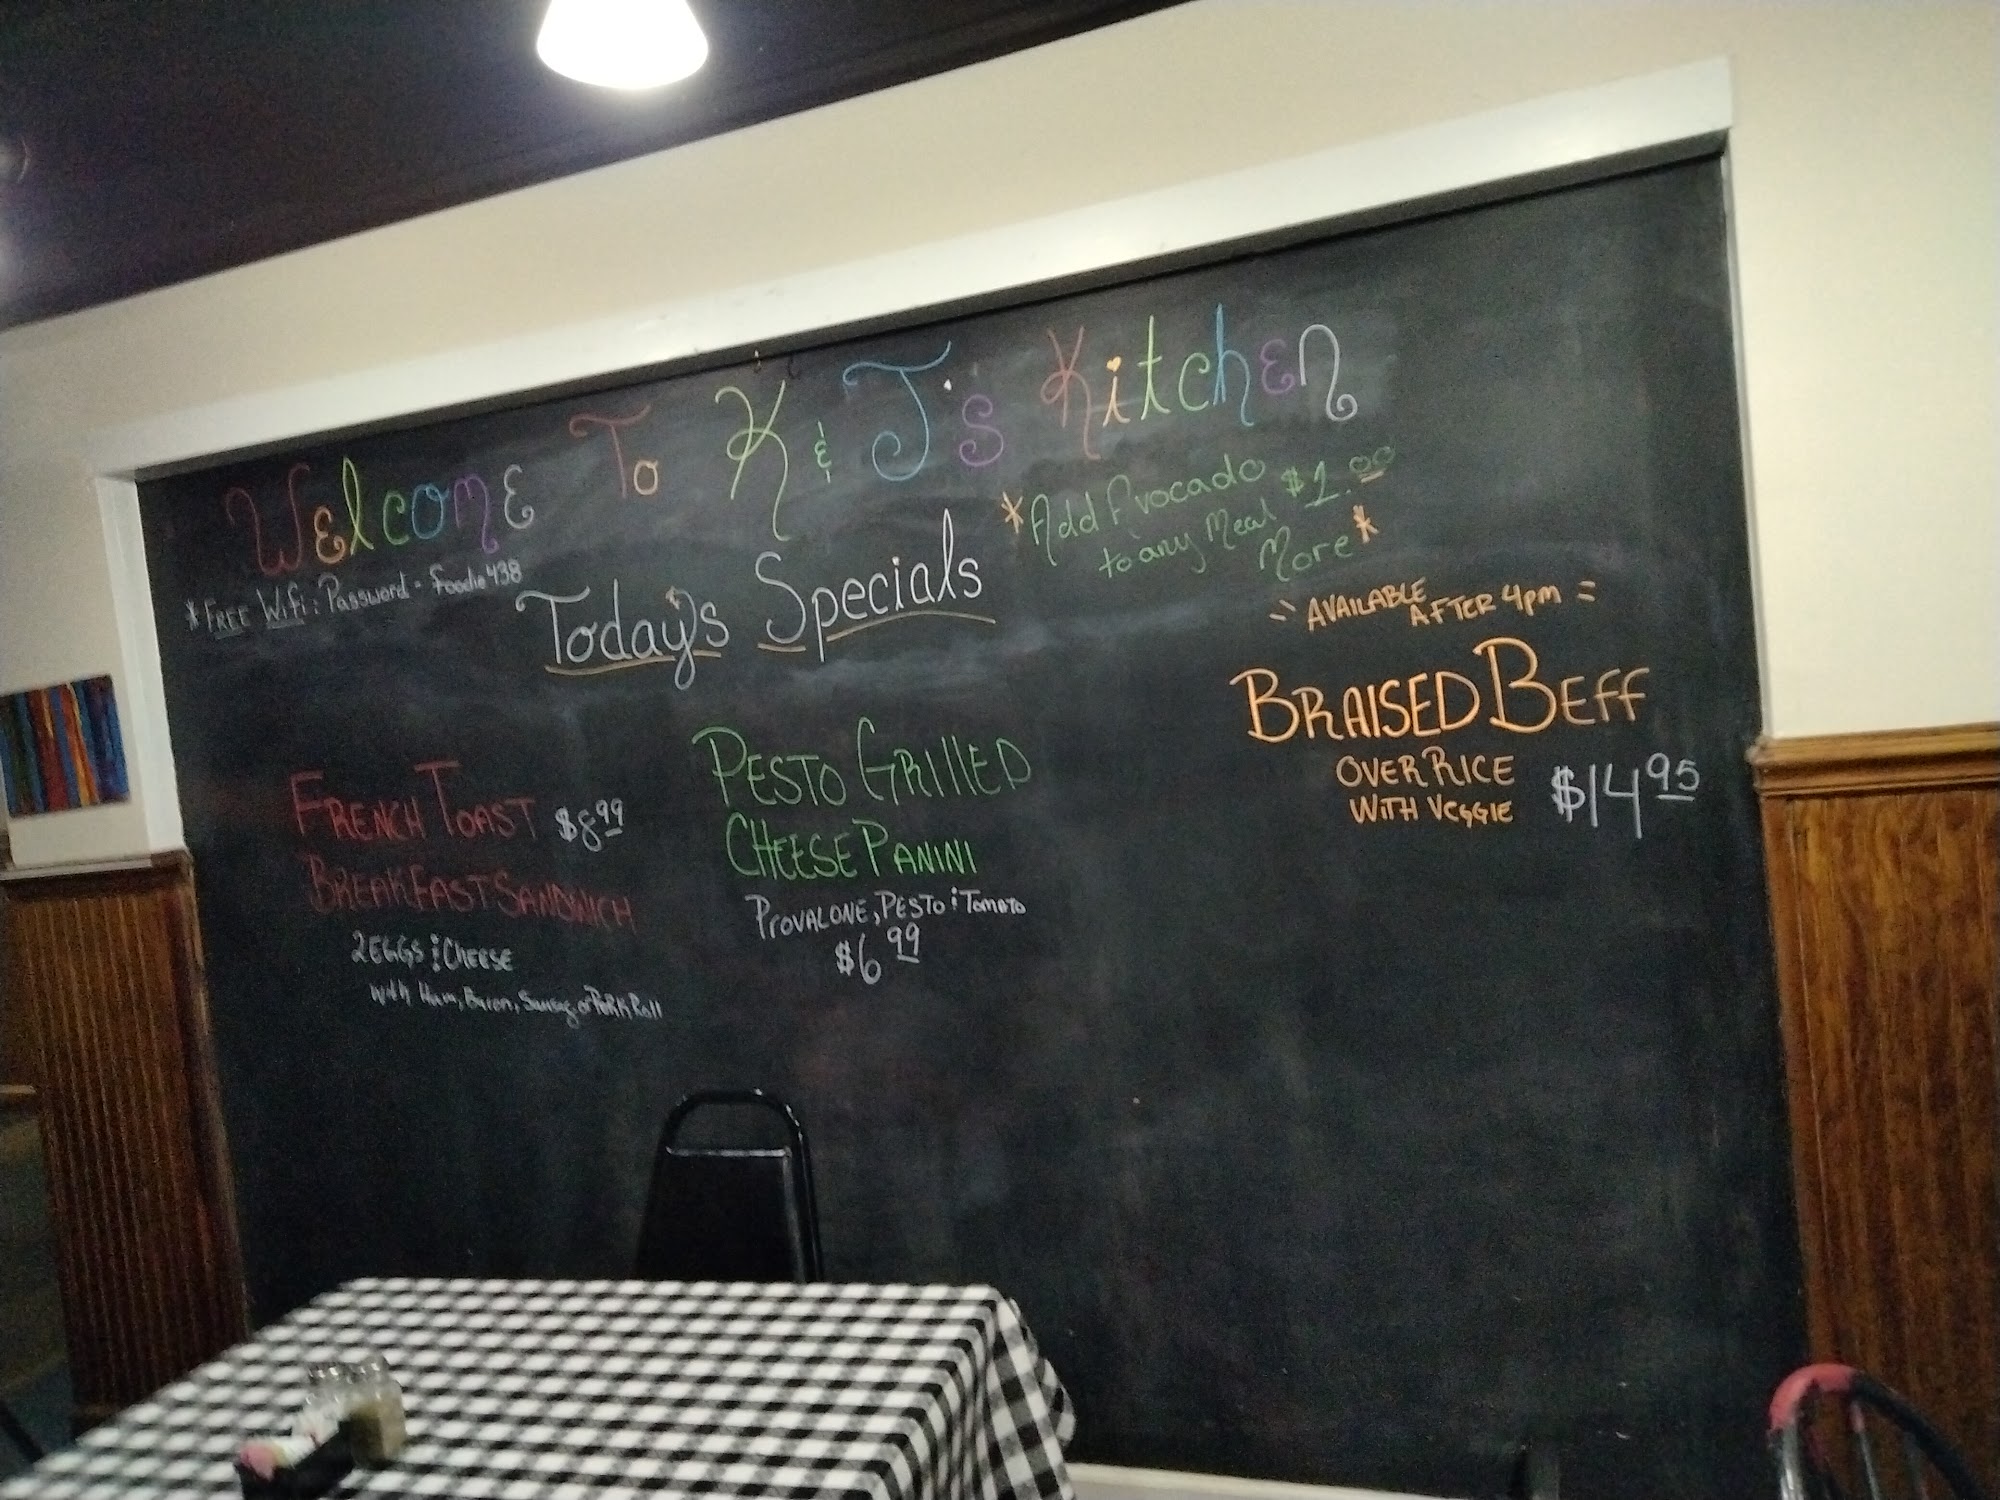 Welcome To K & J's Kitchen
*Free Wifi: Password - foodie438
*Add Avocado
to any Meal $1.00
More*
Today's Specials
French Toast $8.99
Breakfast Sandwich
2 Eggs & Cheese
with Ham, Bacon, Sausag or Pork Roll
Pesto Grilled
Cheese Panini
Provalone, Pesto & Tomato
$6.99
Available
After 4pm
Braised Beff
over Rice
with Veggie $14.95